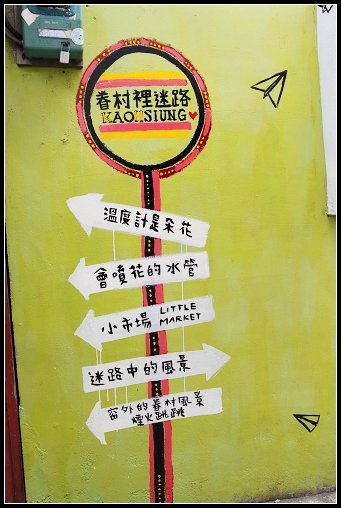 眷村裡迷路
KAOHSIUNG
溫度計是朵花
會噴花的水管
小市場 LITTLE MARKET
迷路中的風景
窗外的眷村風景
煙火跳跳